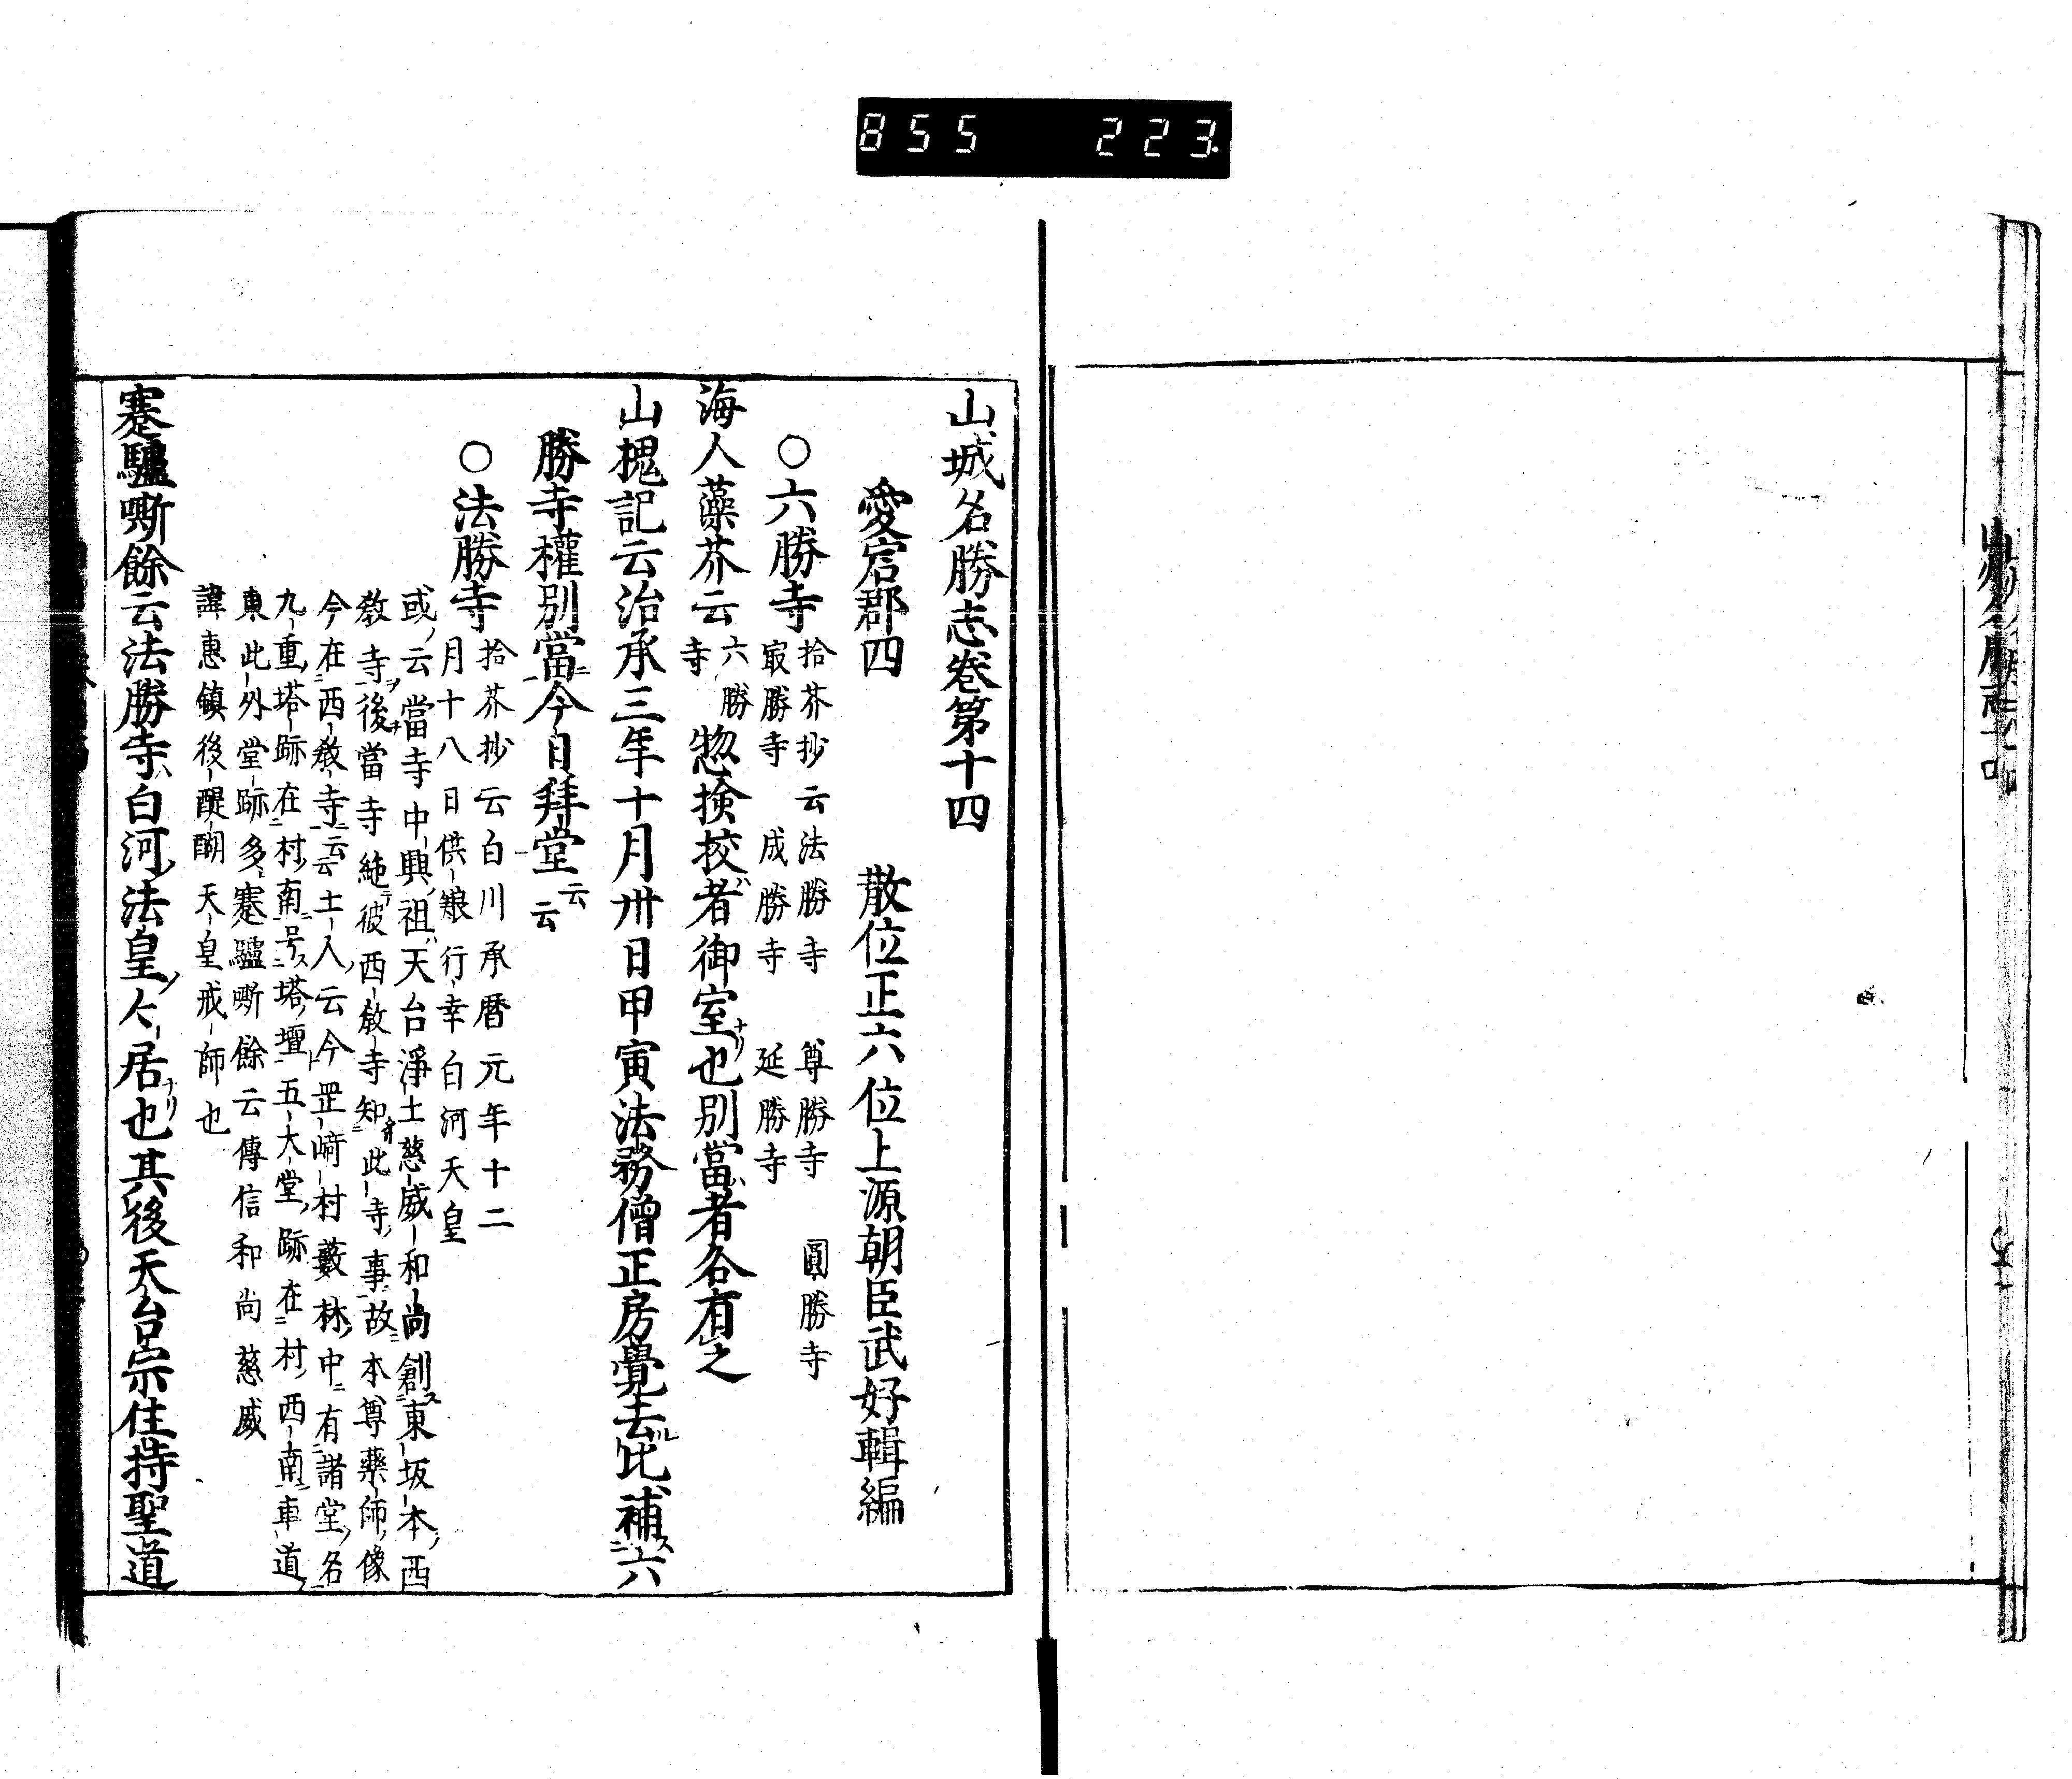 855 223
山城名勝志卷第十四
愛宕郡四 散位正六位上源朝臣武好輯編
○六勝寺 拾芥抄云法勝寺 尊勝寺 圓勝寺
最勝寺 成勝寺 延勝寺
海人藻芥云 六勝
寺 惣撿挍者御室也別當者各有之
山槐記云治承三年十月卅日甲寅法務僧正房覺去比補六
勝寺權別當今日拜堂云云
○法勝寺 拾芥抄云白川承暦元年十二
月十八日供粮行幸白河天皇
或云當寺中興祖天台淨土慈威和尚創東坂本西
教寺後當寺純彼西教寺知此寺事故本尊藥師像
今在西教寺云云土人云今罡﨑村藪林中有諸堂名
九重塔跡在村南号塔壇五大堂跡在村西南車道
東此外堂跡多蹇驢嘶餘云傳信和尚慈威
諱惠鎮後醍醐天皇戒師也
蹇驢嘶餘云法勝寺白河法皇仙居也其後天台宗住持聖道